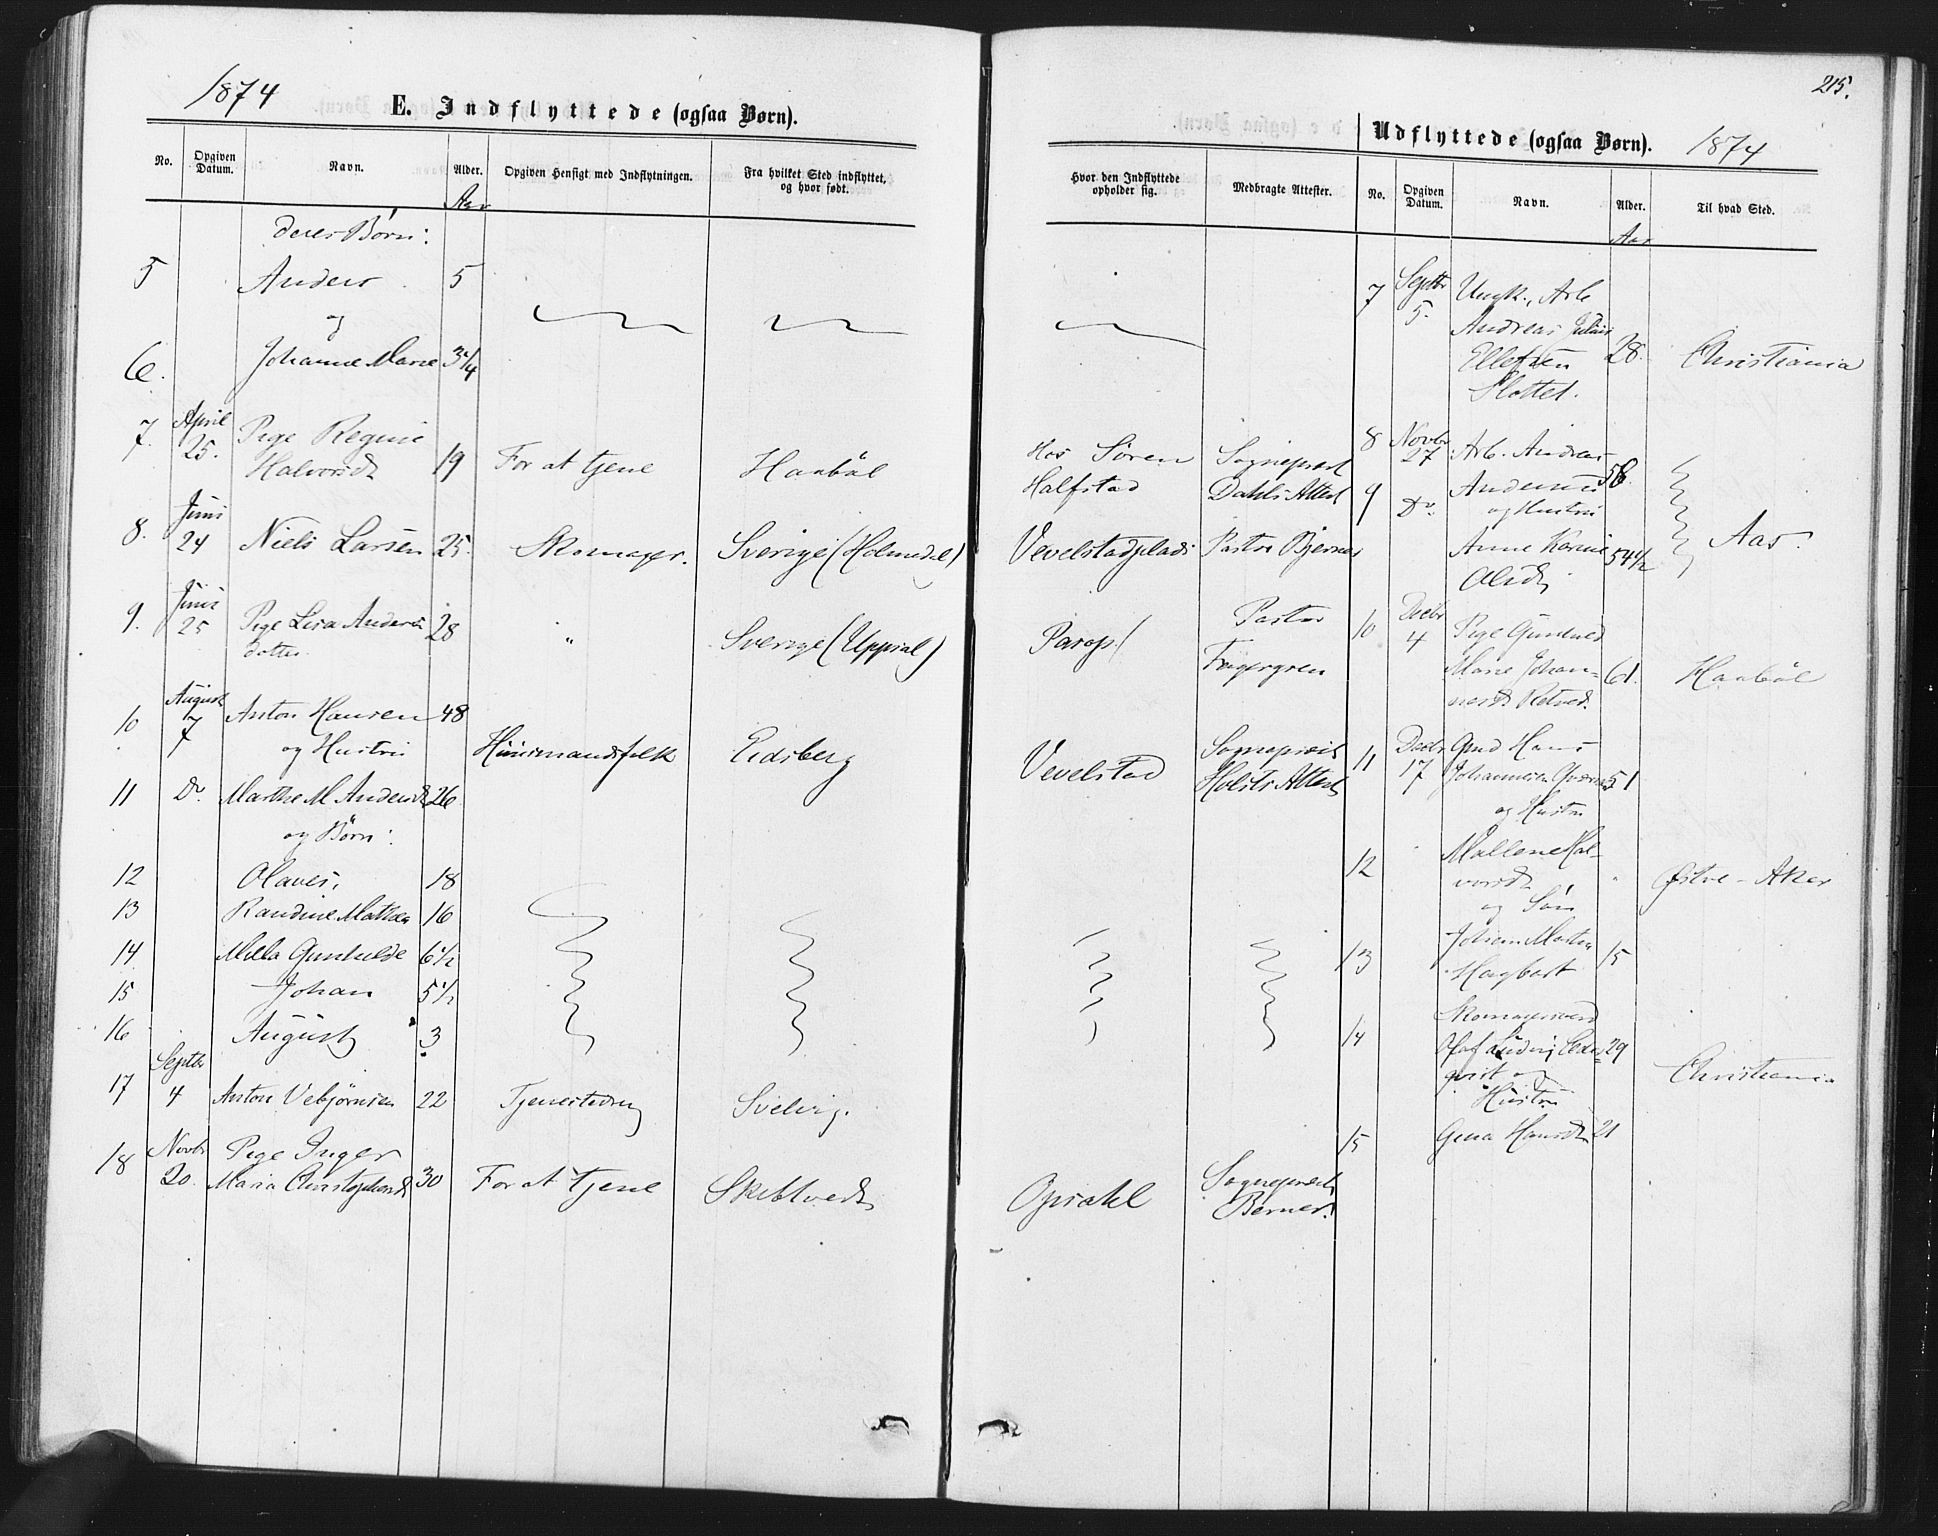 1874
E. Indflyttede (ogsaa Børn).
No. Opgiven Datum. Navn. Alder. Opgiven Hensigt med Indflytningen. Fra hvilket Sted indflyttet, og hvor født.
Aar
deres Børn:
5 Anders 5
og
6. Johanne Marie 3 1/4
7. April 25. Pige Regine
Halvorsd. 19 For at tjene Haabøl
8. Juni 24 Niels Larsen 25. Skomager. Sverige (Holmedal)
9. Juni 25 Pige Lisa Anders 28 " Sverige (Uppsal)
dotter.
10 August 7 Anton Hansen 48
og Hustru Huusmandsfolk Eidsberg
11 Do. Marthe M. Andersd. 26
og Børn:
12 Olaves, 18
13 Randine Mathea 16
14 Milla Gunhilde 6 1/2
15 Johan 5 1/2
16 August 3
17 Septbr 4 Anton Vebjørnsen 22 Tjenestedreng Svelvig.
18 Novbr 20. Pige Inger
Maria Christophersd. 30 For at tjene Skibtvedt
215.
Udflyttede (ogsaa Børn). 1874
Hvor den Indflyttede opholder sig. Medbragte Attester. No. Opgiven Datum. Navn. Alder. Til hvad Sted.
Aar
7 Septbr 5. Ungk., Arb.
Andreas Julius
Ellefsen 28. Christiania
Slottet.
Hos Søren Sognepræst 8 Novbr 27 Arb. Andreas
Halfstad Dahls Attest 9 Do. Andersen 58.
og Hustru
Vevelstadplads Pastor Bjerner Anne Karine 54 1/2 Aas.
Olsd.
Parop Pastor 10 Decbr 4 Pige Gunhild
Fagergren Marie Johan- 61. Haabøl
nesd. Retved.
Vevelstad Sognepræst 11 Decbr 17 Gmd Hans
Holsts Attest Johannesen 51
og Hustru
12 Mallene Hal-
vorsd. Østre-Aker
og Søn
13 Johan Martin 15
Hagbart
14 Skomagersvend
Olaf Ludvig Ceder- 29
qvist og Christiania
Hustru
15 Gina Hansd. 21
Opsahl Sognepræst
Berner.